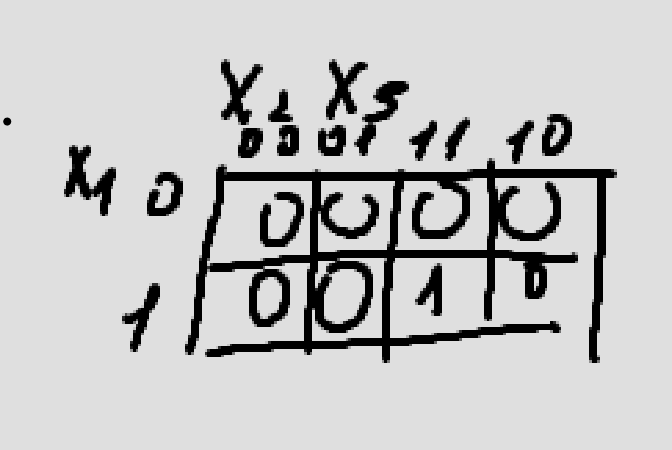 X2 X3
00 01 11 10
X1 0 0 0 0 0
1 0 0 1 0